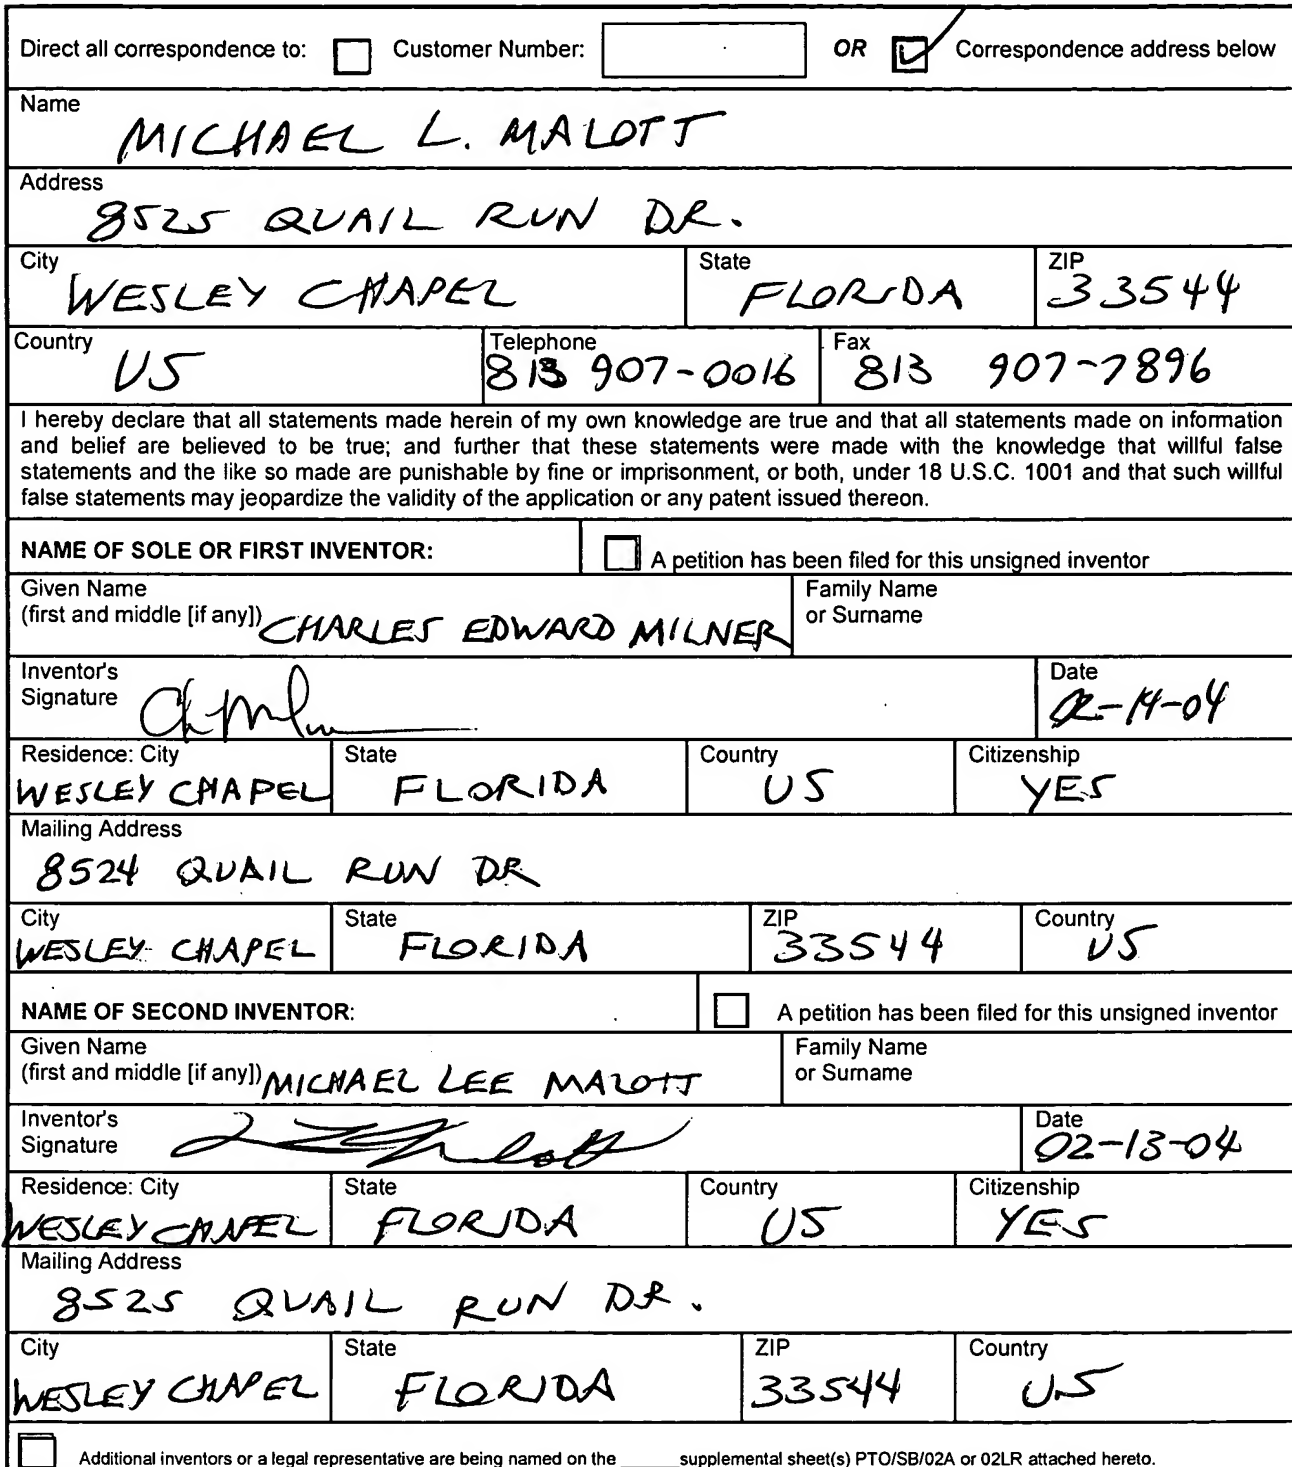 Direct all correspondence to: Customer Number: OR Correspondence address below
Name
MICHAEL L. MALOTT
Address
8525 QUAIL RUN DR.
City State ZIP
WESLEY CHAPEL FLORIDA 33544
Country Telephone Fax
US 813 907-0016 813 907-7896
I hereby declare that all statements made herein of my own knowledge are true and that all statements made on information
and belief are believed to be true; and further that these statements were made with the knowledge that willful false
statements and the like so made are punishable by fine or imprisonment, or both, under 18 U.S.C. 1001 and that such willful
false statements may jeopardize the validity of the application or any patent issued thereon.
NAME OF SOLE OR FIRST INVENTOR: A petition has been filed for this unsigned inventor
Given Name Family Name
(first and middle [if any]) CHARLES EDWARD MILNER or Surname
Inventor's Date
Signature 02-14-04
Residence: City State Country Citizenship
WESLEY CHAPEL FLORIDA US YES
Mailing Address
8524 QUAIL RUN DR
City State ZIP Country
WESLEY CHAPEL FLORIDA 33544 US
NAME OF SECOND INVENTOR: A petition has been filed for this unsigned inventor
Given Name Family Name
(first and middle [if any]) MICHAEL LEE MALOTT or Surname
Inventor's Date
Signature 02-13-04
Residence: City State Country Citizenship
WESLEY CHAPEL FLORIDA US YES
Mailing Address
8525 QUAIL RUN DR.
City State ZIP Country
WESLEY CHAPEL FLORIDA 33544 US
Additional inventors or a legal representative are being named on the ______supplemental sheet(s) PTO/SB/02A or 02LR attached hereto.